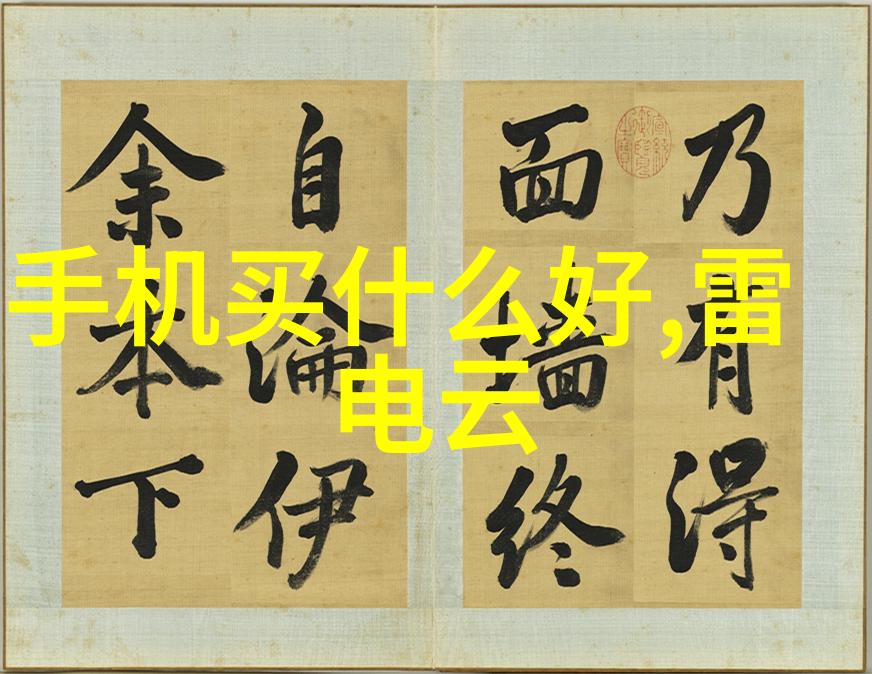 手机买什么好,雷
电云
乃有得
面墙终
自沦伊
余本下